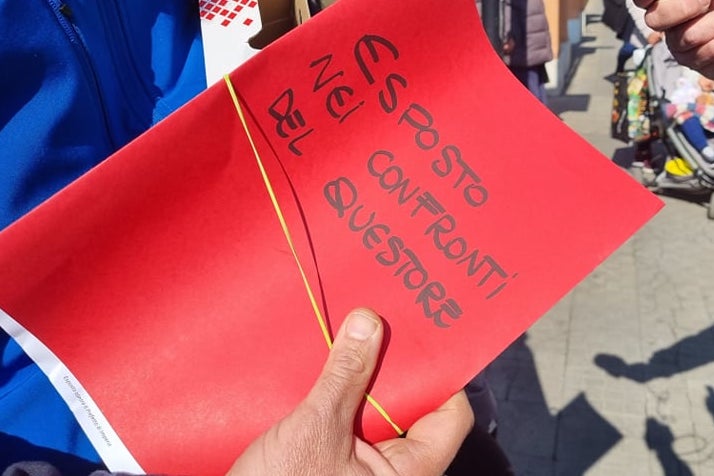 ESPOSTO
NEi CONFRONTi
DEL QUESTORE